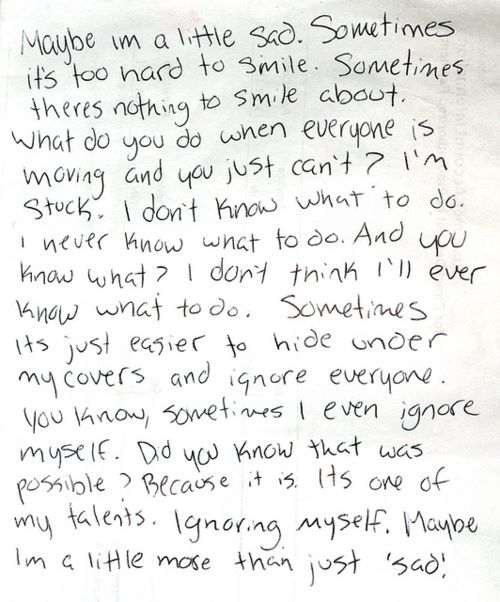 Maybe im a little sad. Sometimes
it's too hard to smile. Sometimes
theres nothing to smile about.
What do you do when everyone is
moving and you just can't? I'm
stuck. I don't know what to do.
I never know what to do. And you
know what? I don't think I'll ever
know what to do. Sometimes
its just easier to hide under
my covers and ignore everyone.
You know, sometimes I even ignore
myself. Did you know that was
possible? Because it is. Its one of
my talents. Ignoring myself. Maybe
Im a little more than just 'sad'.